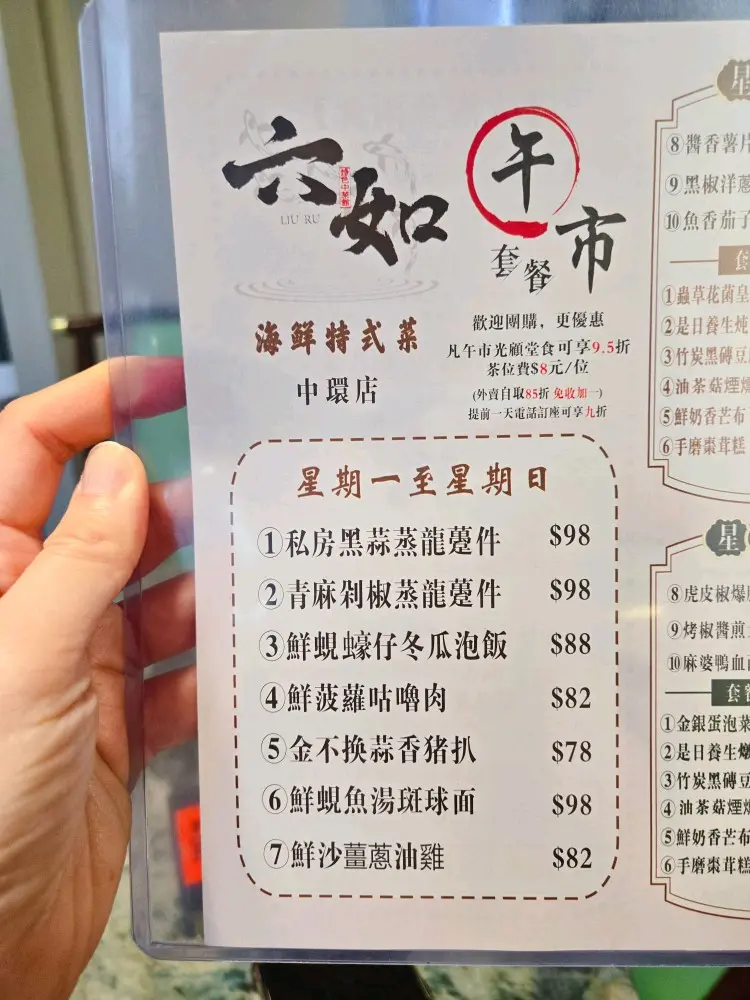 六如
LIU RU
午市
套餐
海鮮特式菜
中環店
歡迎團購，更優惠
凡午市光顧堂食可享9.5折
茶位費$8元/位
(外賣自取85折 免收加一)
提前一天電話訂座可享九折
星期一至星期日
①私房黑蒜蒸龍躉件 $98
②青麻剁椒蒸龍躉件 $98
③鮮蜆蠔仔冬瓜泡飯 $88
④鮮菠蘿咕嚕肉 $82
⑤金不换蒜香猪扒 $78
⑥鮮蜆魚湯斑球面 $98
⑦鮮沙薑蔥油雞 $82
星
⑧醬香薯片
⑨黑椒洋蔥
⑩魚香茄子
套
①蟲草花菌皇
②是日養生炖
③竹炭黑磚豆
④油茶菇煙燻
⑤鮮奶香芒布
⑥手磨棗茸糕
星
⑧虎皮椒爆
⑨烤椒醬煎
⑩麻婆鴨血
套餐
①金銀蛋泡菜
②是日養生燉
③竹炭黑磚豆
④油茶菇煙燻
⑤鮮奶香芒布
⑥手磨棗茸糕